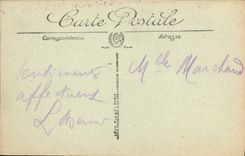 Carte Postale
Correspondance
Adresse
Sentiments
affectueux
Mlle Marchand